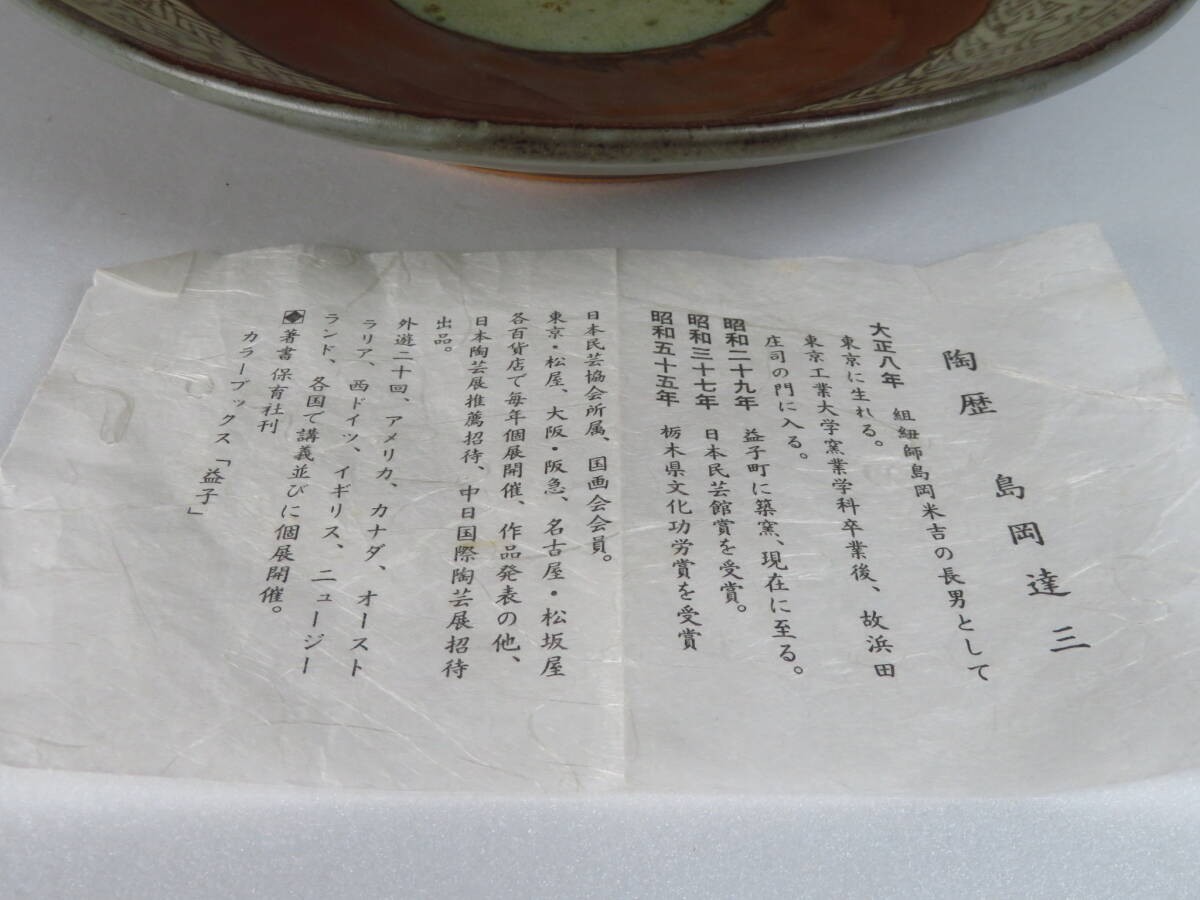 陶歴 島岡達三
大正八年 組紐師島岡米吉の長男として
東京に生れる。
東京工業大学窯業学科卒業後、故浜田
庄司の門に入る。
昭和二十九年 益子町に築窯、現在に至る。
昭和三十七年 日本民芸館賞を受賞。
昭和五十五年 栃木県文化功労賞を受賞
日本民芸協会所属、国画会会員。
東京・松屋、大阪・阪急、名古屋・松坂屋
各百貨店で毎年個展開催、作品発表の他、
日本陶芸展推薦招待、中日国際陶芸展招待
出品。
外遊二十回、アメリカ、カナダ、オースト
ラリア、西ドイツ、イギリス、ニュージー
ランド、各国で講義並びに個展開催。
◆著書 保育社刊
カラーブックス「益子」